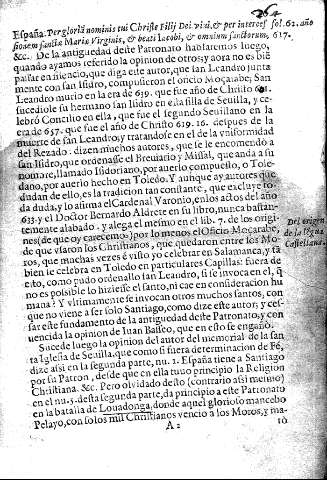 264
España. Per gloriã nominis tui Christe Filij Dei viui, & per interces
sionem sanctæ Mariæ Virginis, & beati Iacobi, & omnium sanctorum,
&c. De la antiguedad deste Patronato hablaremos luego,
quando ayamos referido la opinion de otros; y aora no es biẽ
passar en silencio, que diga este autor, que san Leandro junta
mente con san Isidro, compusieron el oficio Moçarabe; San
Leandro murio en la era de 639. que fue año de Christo 601.
sucediole su hermano san Isidro en la silla de Seuilla, y ce-
lebró Concilio en ella, que fue el segundo Seuillano en la
era de 657. que fue año de Christo 619. 16. despues de la
muerte de san Leandro; y tratandose en el de la vniformidad
del Rezado. dizen muchos autores, que se le encomendó a
san Isidro, que ordenasse el Breuiario y Missal, que anda a su
nombre, llamado Isidoriano, por auerlo compuesto, o Tole-
dano, por auerlo hecho en Toledo. Y aunque ay autores que
dudan de ello, es la tradicion tan constante, que excluye to-
da duda, y lo afirma el Cardenal Varonio, en los años del año
633. y el Doctor Bernardo Aldrete en su libro, nunca bastan-
temente alabado. y alega el mesmo en el lib. 7. de los orige-
nes (de que oy carecemos) por lo menos el Oficio Moçarabe,
de que vsaron los Christianos, que quedaron entre los Mo-
ros, que muchas vezes é visto yo celebrar en Salamanca, y tã
bien le celebra en Toledo en particulares Capillas: fuera de
esto, como pudo ordenallo san Leandro, si se inuoca en el, q̃
no es possible lo hiziesse el santo, ni cae en consideracion hu
mana? Y vltimamente se inuocan otros muchos santos, con
que no viene a ser solo Santiago, como dize este autor; y ces-
sar este fundamento de la antiguedad deste Patronato, y con
uencida la opinion de Iuan Baseo, que en esto se engañó.
Sucede luego la opinion del autor del memorial de la san
ta Iglesia de Seuilla, que como si fuera determinacion de Fé,
dize assi en la segunda parte, nu. 1. España tiene a Santiago
por su Patron, desde que en ella tuuo principio la Religion
Christiana. &c. Pero oluidado desto (contrario assi mesmo)
en el nu. 3. desta segunda parte, da principio a este Patronato
en la batalla de Louadonga, donde aquel glorioso mancebo
Pelayo, con solos mil Christianos vencio a los Moros, y ma-
A 2
tó
sol. 62. año
617.
Del origen
de la lẽgua
Castellana